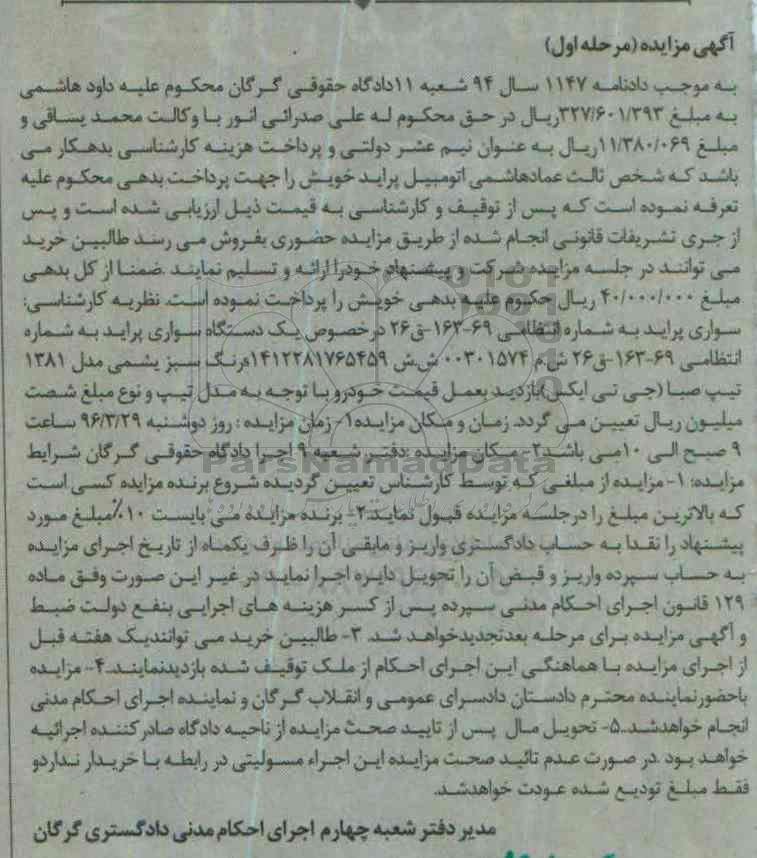 آگهی مزایده (مرحله اول)
به موجب دادنامه ۱۱۴۷ سال ۹۴ شعبه ۱۱دادگاه حقوقی گرگان محکوم علیه داود هاشمی
به مبلغ ۳۲۷/۶۰۱/۳۹۳ریال در حق محکوم له علی صدرائی انور با وکالت محمد یساقی و
مبلغ ۱۱/۳۸۰/۰۶۹ریال به عنوان نیم عشر دولتی و پرداخت هزینه کارشناسی بدهکار می
باشد که شخص ثالث عمادهاشمی اتومبیل پراید خویش را جهت پرداخت بدهی محکوم علیه
تعرفه نموده است که پس از توقیف و کارشناسی به قیمت ذیل ارزیابی شده است و پس
از جری تشریفات قانونی انجام شده از طریق مزایده حضوری بفروش می رسد طالبین خرید
می توانند در جلسه مزایده شرکت و پیشنهاد خودرا ارائه و تسلیم نمایند .ضمنا از کل بدهی
مبلغ ۴۰/۰۰۰/۰۰۰ ریال حکوم علیه بدهی خویش را پرداخت نموده است. نظریه کارشناسی:
سواری پراید به شماره انتظامی ۶۹-۱۶۳-ق۲۶ درخصوص یک دستگاه سواری پراید به شماره
انتظامی ۶۹-۱۶۳-ق۲۶ ش.م ۰۰۳۰۱۵۷۴ ش.ش ۱۴۱۲۲۸۱۷۶۵۴۵۹ه‍رنگ سبز یشمی مدل ۱۳۸۱
تیپ صبا (جی تی ایکس)بازدید بعمل قیمت خودرو با توجه به مدل تیپ و نوع مبلغ شصت
میلیون ریال تعیین می گردد. زمان و مکان مزایده۱- زمان مزایده : روز دوشنبه ۹۶/۳/۲۹ ساعت
۹ صبح الی ۱۰می باشد۲- مکان مزایده :دفتر شعبه ۹ اجرا دادگاه حقوقی گرگان شرایط
مزایده: ۱- مزایده از مبلغی که توسط کارشناس تعیین گردیده شروع برنده مزایده کسی است
که بالاترین مبلغ را درجلسه مزایده قبول نماید.۲- برنده مزایده می بایست ۱۰٪مبلغ مورد
پیشنهاد را نقدا به حساب دادگستری واریز و مابقی آن را ظرف یکماه از تاریخ اجرای مزایده
به حساب سپرده واریز و قبض آن را تحویل دایره اجرا نماید در غیر این صورت وفق ماده
۱۲۹ قانون اجرای احکام مدنی سپرده پس از کسر هزینه های اجرایی بنفع دولت ضبط
و آگهی مزایده برای مرحله بعدتجدیدخواهد شد. ۳- طالبین خرید می توانندیک هفته قبل
از اجرای مزایده با هماهنگی این اجرای احکام از ملک توقیف شده بازدیدنمایند.۴- مزایده
باحضورنماینده محترم دادستان دادسرای عمومی و انقلاب گرگان و نماینده اجرای احکام مدنی
انجام خواهدشد.۵- تحویل مال پس از تایید صحت مزایده از ناحیه دادگاه صادرکننده اجرائیه
خواهد بود .در صورت عدم تائید صحت مزایده این اجراء مسولیتی در رابطه با خریدار نداردو
فقط مبلغ تودیع شده عودت خواهدشد.
مدیر دفتر شعبه چهارم اجرای احکام مدنی دادگستری گرگان
ParsNamadData